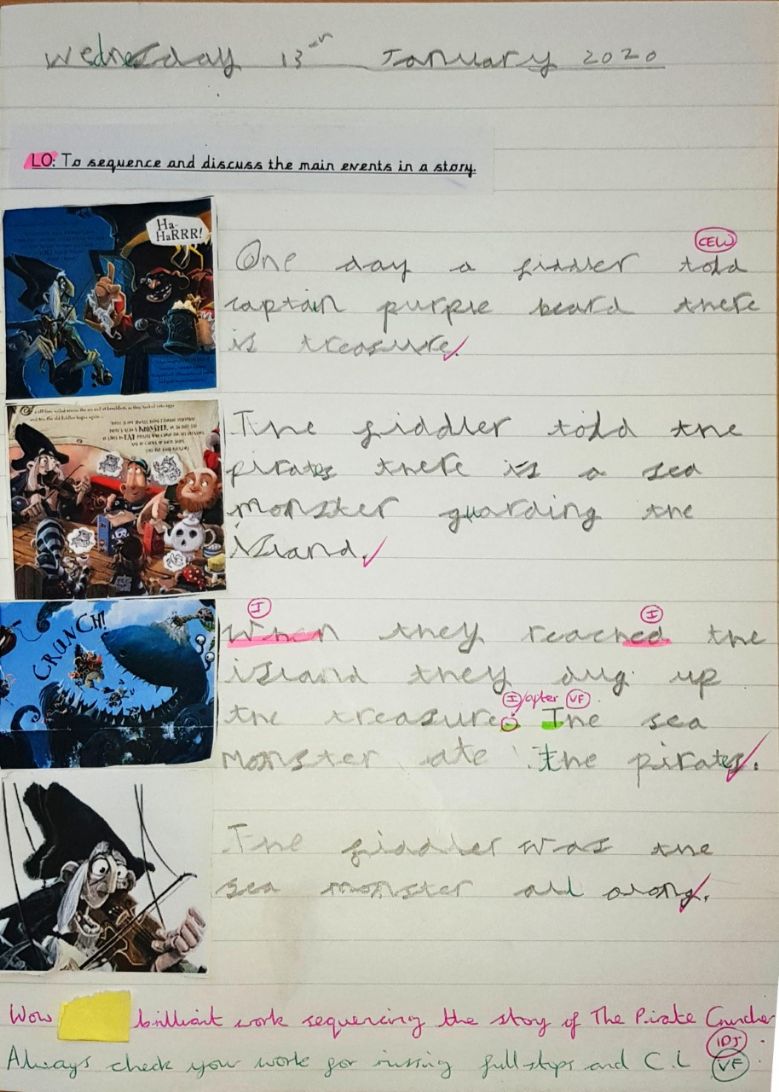 Wednesday 13th January 2020
LO: To sequence and discuss the main events in a story.
Ha-
HaRRR!
CEW
One day a fiddler told
captain purple beard there
is treasure.
The fiddler told the
pirates there is a sea
monster guarding the
island.
CRUNCH!
I I
When they reached the
island they dug up
I after VF
the treasure. The sea
monster ate the pirates.
The fiddler was the
sea monster all along.
Wow brilliant work sequencing the story of The Pirate Cruncher
IDJ
Always check your work for missing full stops and C.L VF